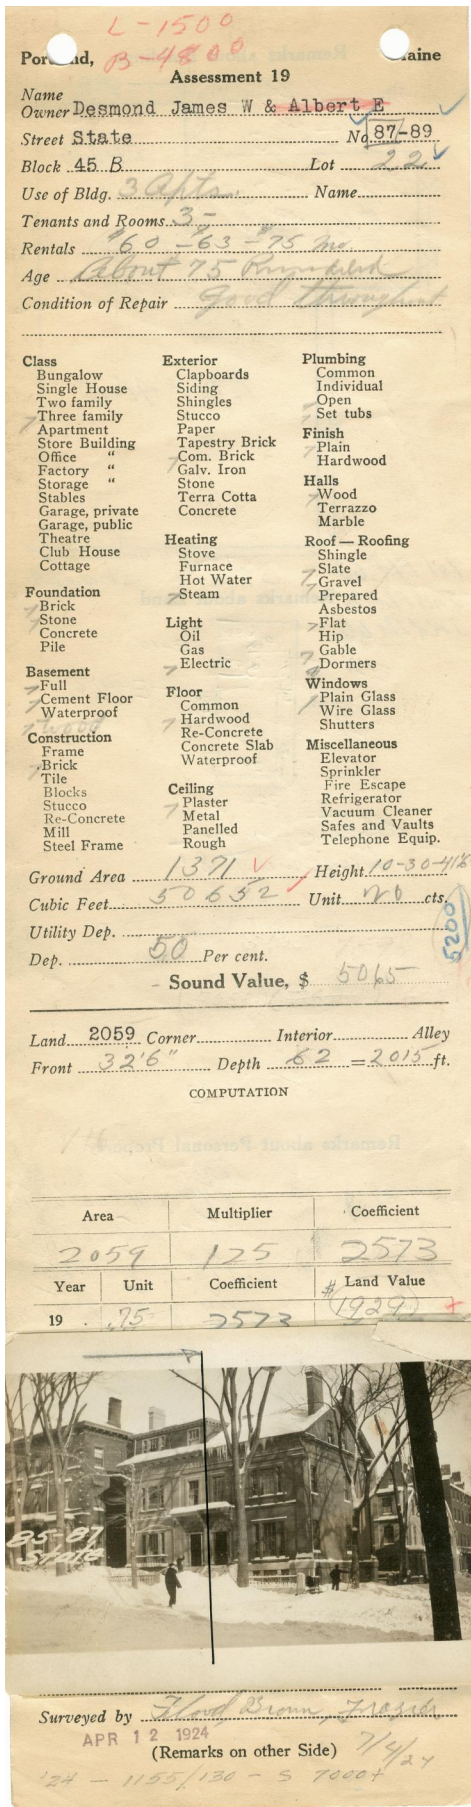 L-1500
B-4800
Portland, Maine
Assessment 19
Name
Owner Desmond James W & Albert E
Street State No 87-89
Block 45 B Lot 22
Use of Bldg. 3 Apts. Name
Tenants and Rooms 3-
Rentals $60 - $63 - $75 mo.
Age About 75 Remodeled
Condition of Repair Good throughout
Class
Bungalow
Single House
Two family
Three family
Apartment
Store Building
Office "
Factory "
Storage "
Stables
Garage, private
Garage, public
Theatre
Club House
Cottage
Foundation
Brick
Stone
Concrete
Pile
Basement
Full
Cement Floor
Waterproof
Wood
Construction
Frame
Brick
Tile
Blocks
Stucco
Re-Concrete
Mill
Steel Frame
Exterior
Clapboards
Siding
Shingles
Stucco
Paper
Tapestry Brick
Com. Brick
Galv. Iron
Stone
Terra Cotta
Concrete
Heating
Stove
Furnace
Hot Water
Steam
Light
Oil
Gas
Electric
Floor
Common
Hardwood
Re-Concrete
Concrete Slab
Waterproof
Ceiling
Plaster
Metal
Panelled
Rough
Plumbing
Common
Individual
Open
Set tubs
Finish
Plain
Hardwood
Halls
Wood
Terrazzo
Marble
Roof — Roofing
Shingle
Slate
Gravel
Prepared
Asbestos
Flat
Hip
Gable
Dormers
Windows
Plain Glass
Wire Glass
Shutters
Miscellaneous
Elevator
Sprinkler
Fire Escape
Refrigerator
Vacuum Cleaner
Safes and Vaults
Telephone Equip.
Ground Area 1371 Height 10-30-41½
Cubic Feet 50652 Unit 20 cts.
5200
Utility Dep.
Dep. 50 Per cent.
- Sound Value, $ 5065
Land 2059 Corner Interior Alley
Front 32'6" Depth 62 = 2015 ft.
COMPUTATION
Area Multiplier Coefficient
2059 125 2573
Year Unit Coefficient $ Land Value
19 .75 2573 1929
85-87
State
Surveyed by Floyd Brown, Frazier
APR 12 1924
(Remarks on other Side) 7/4/24
'24 - 1155/130 - S 7000+